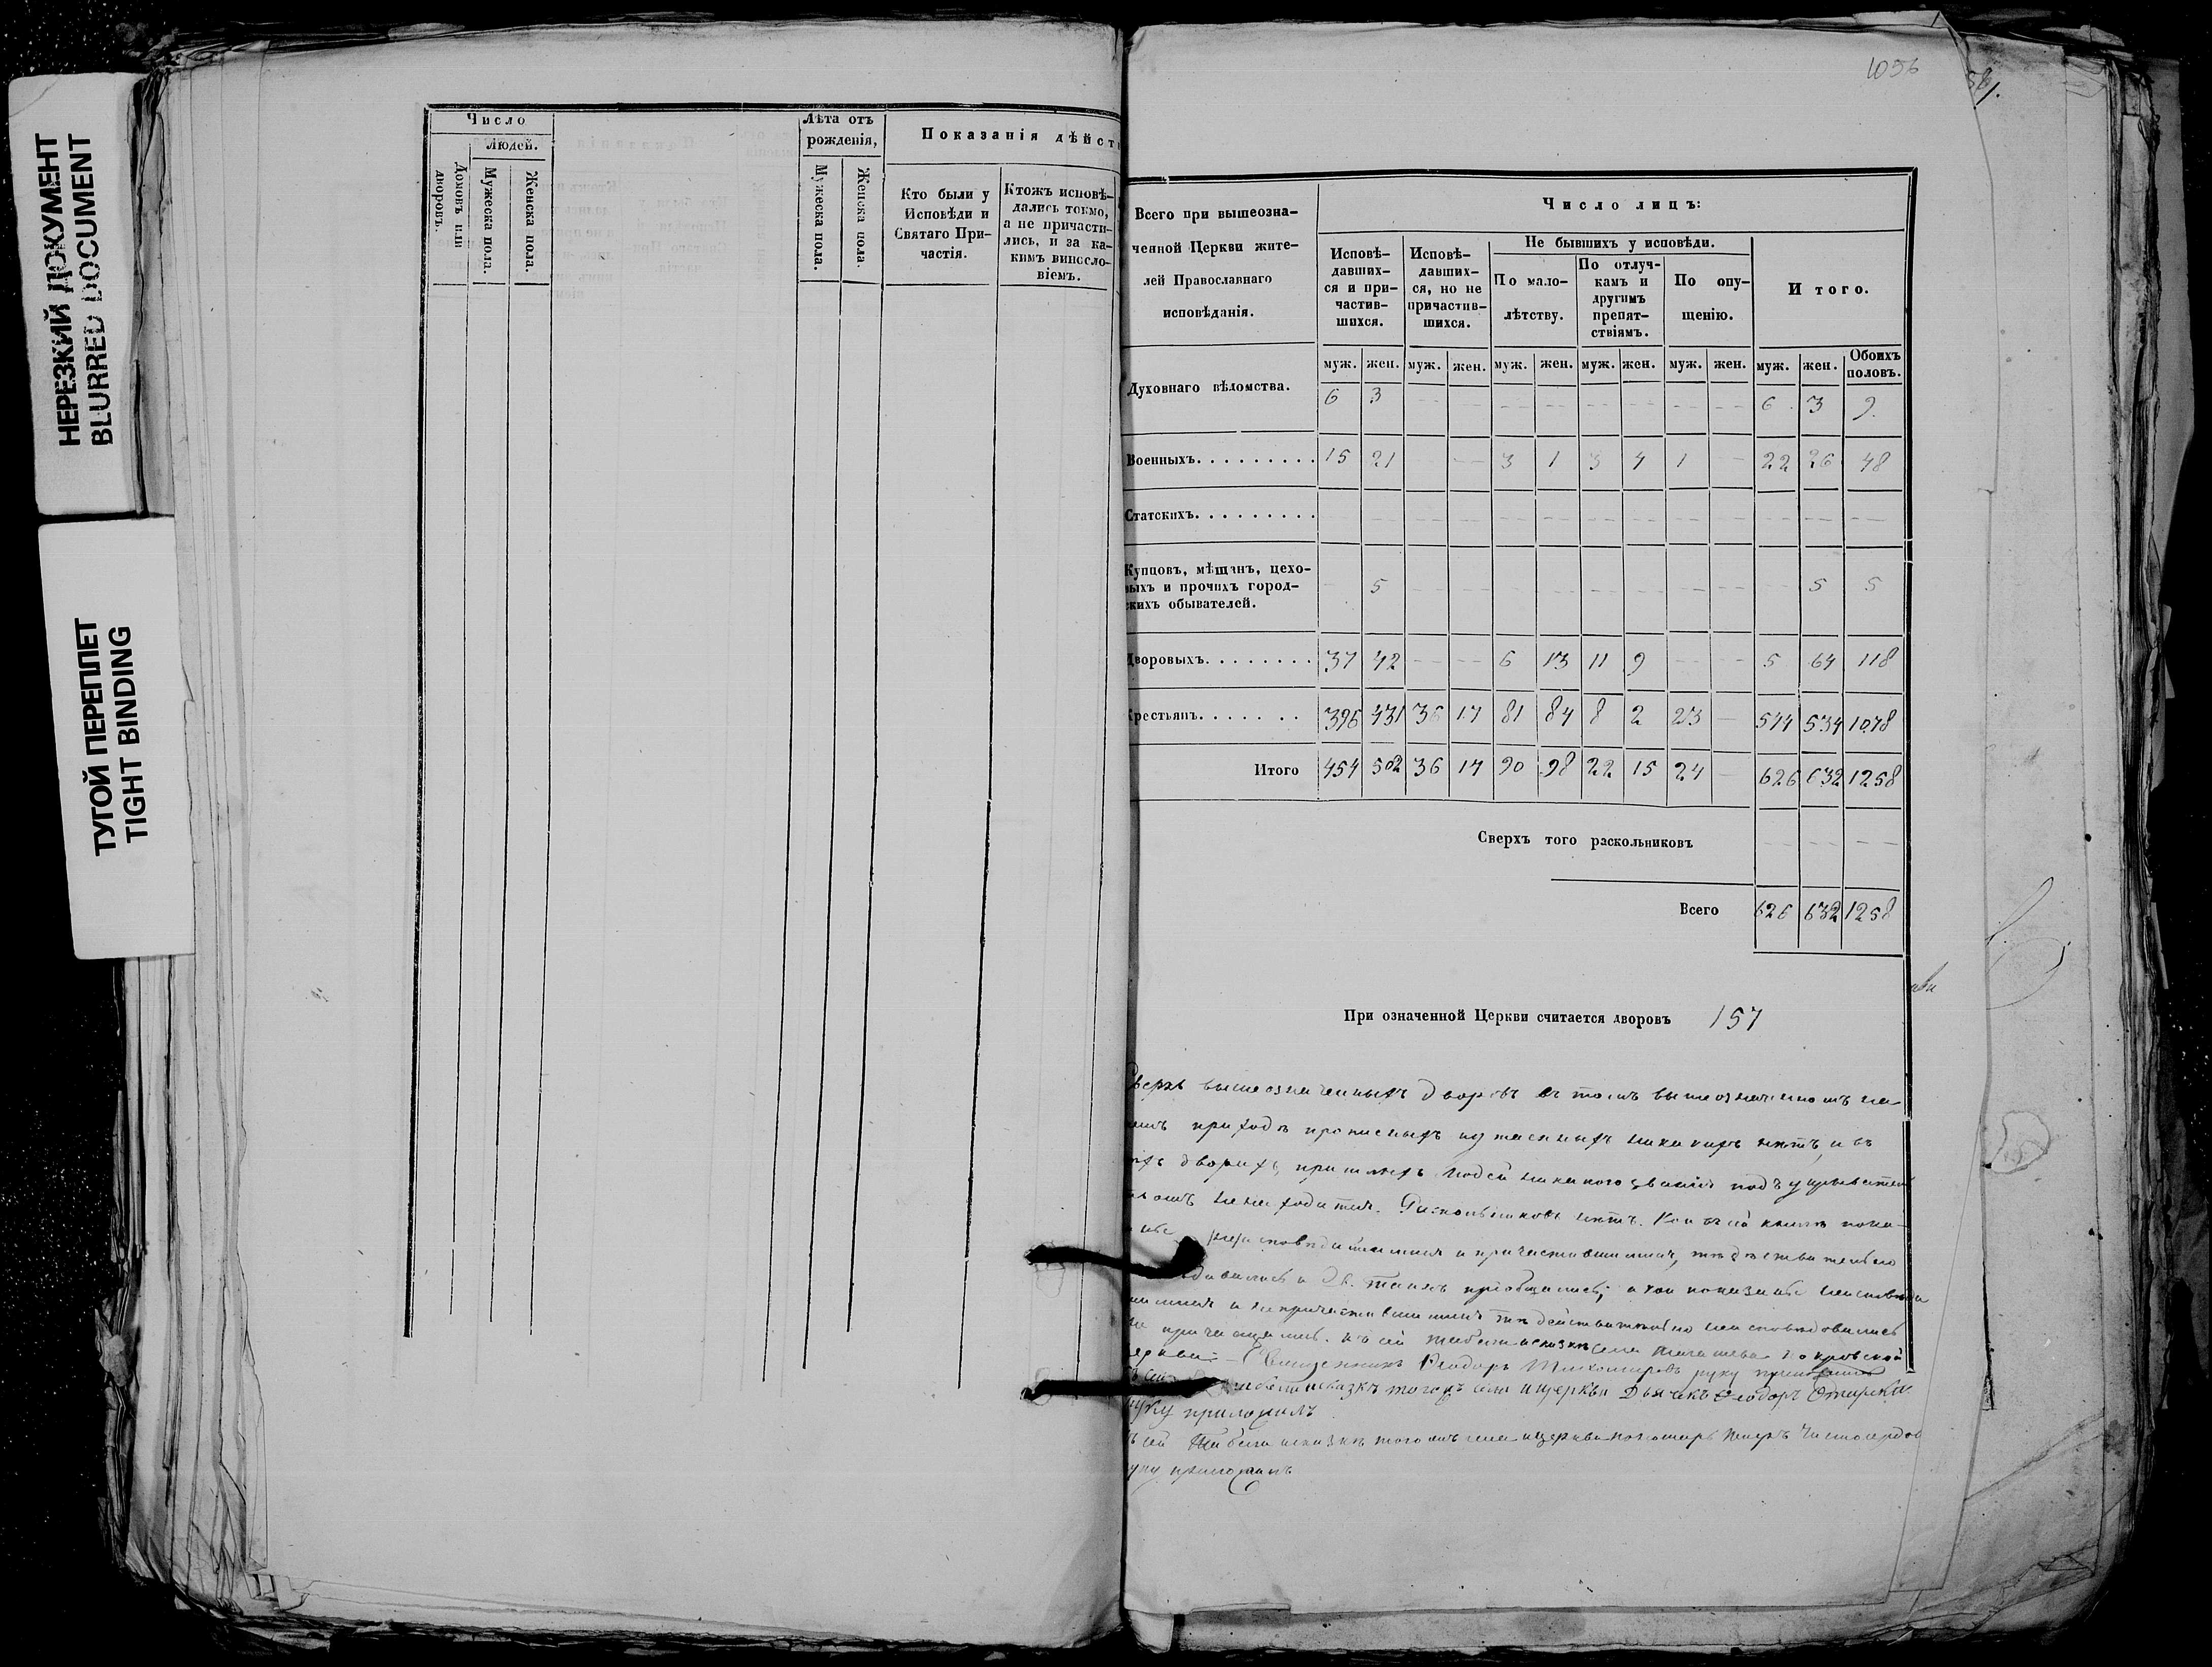 НЕРЕЗКИЙ ДОКУМЕНТ
BLURRED DOCUMENT
ТУГОЙ ПЕРЕПЛЕТ
TIGHT BINDING
Число
людей.
Домовъ или дворовъ.
Мужеска пола.
Женска пола.
Лѣта отъ
рожденія,
Мужеска пола.
Женска пола.
Показанія дѣйст
Кто были у
Исповѣди и
Святаго При-
частія.
Ктожъ исповѣ-
дались токмо,
а не причасти-
лись, и за ка-
кимъ винсло-
віемъ.
1056
Всего при вышеозна-
ченной Церкви жите-
лей Православнаго
исповѣданія.
Число лицъ:
Исповѣ-
давших-
ся и при-
частив-
шихся.
Исповѣ-
давших-
ся, но не
причастив-
шихся.
Не бывшихъ у исповѣди.
По мало-
лѣтству.
По отлуч-
камъ и
другимъ
препят-
ствіямъ.
По опу-
щенію.
Итого.
муж. жен. муж. жен. муж. жен. муж. жен. муж. жен. муж. жен. Обоихъ половъ.
Духовнаго вѣдомства. 6 3 — — — — — — — — 6 3 9
Военныхъ. 15 21 — — 3 1 3 4 1 — 22 26 48
Статскихъ. — — — — — — — — — — — —
Купцовъ, мѣщанъ, цехо-
выхъ и прочихъ город-
скихъ обывателей. — 5 — — — — — — — — — 5 5
Дворовыхъ. 37 42 — — 6 13 11 9 — — 5 64 118
Крестьянъ. 396 431 36 17 81 84 8 2 23 — 544 534 1078
Итого 454 502 36 17 90 98 22 15 24 — 626 632 1258
Сверхъ того раскольниковъ — — —
Всего 626 632 1258
При означенной Церкви считается дворовъ 157
Сверхъ вышеозначенныхъ дворовъ въ томъ вышеозначенномъ на-
шемъ приходѣ прописныхъ и утаенныхъ никакихъ нѣтъ, и въ
тѣхъ дворахъ пришлыхъ людей никакого званія подъ укрывател
ствомъ не находится. Раскольниковъ нѣтъ. Кои въ сей книгѣ пока-
исповѣдавшимися и причастившимися, тѣ дѣствительно
Св. таинъ пріобщились; а кои показаны неисповѣда
вшимися и непричастившимися тѣ дѣйствительно неисповѣдовались
не причащались. Къ сей табели и сказкѣ села Покровской
церкви Священникъ Ѳеодоръ Тихомировъ руку приложилъ
сказкѣ тогожъ села и церкви Дьячекъ Ѳеодоръ
руку приложилъ
Къ сей табели и сказкѣ тогожъ села и церкви пономарь
руку приложилъ